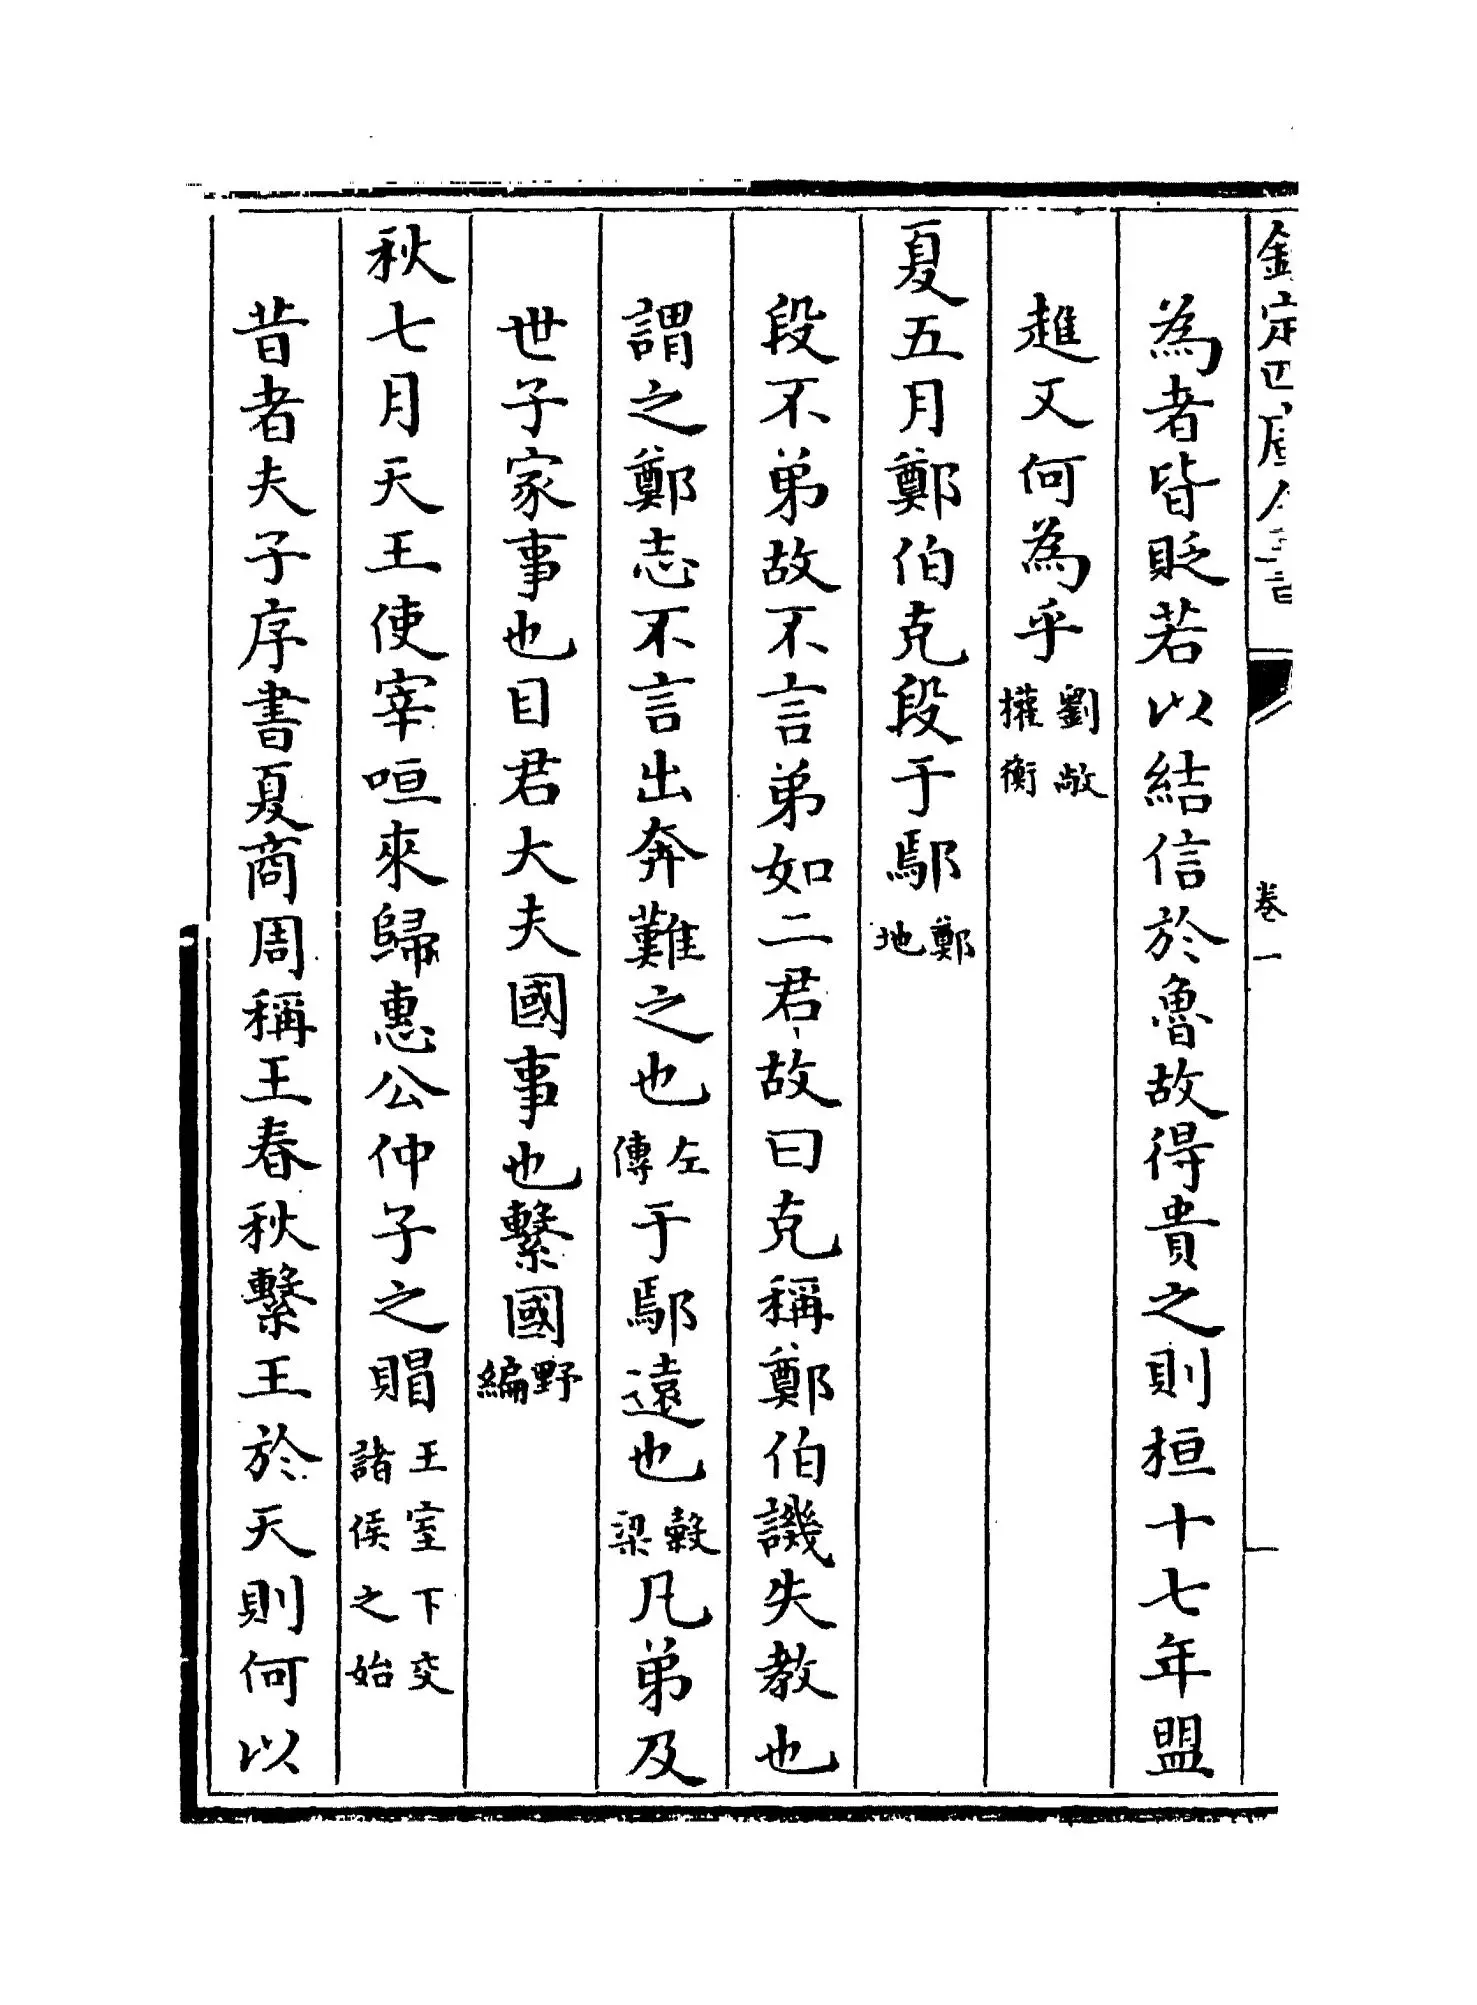 欽定四庫全書 卷一
為者皆貶若以結信於魯故得貴之則桓十七年盟
趡又何為乎劉敞權衡
夏五月鄭伯克段于鄢鄭地
段不弟故不言弟如二君故曰克稱鄭伯譏失教也
謂之鄭志不言出奔難之也左傳于鄢遠也穀梁凡弟及
世子家事也目君大夫國事也繫國野編
秋七月天王使宰咺來歸惠公仲子之賵王室下交諸侯之始
昔者夫子序書夏商周稱王春秋繫王於天則何以